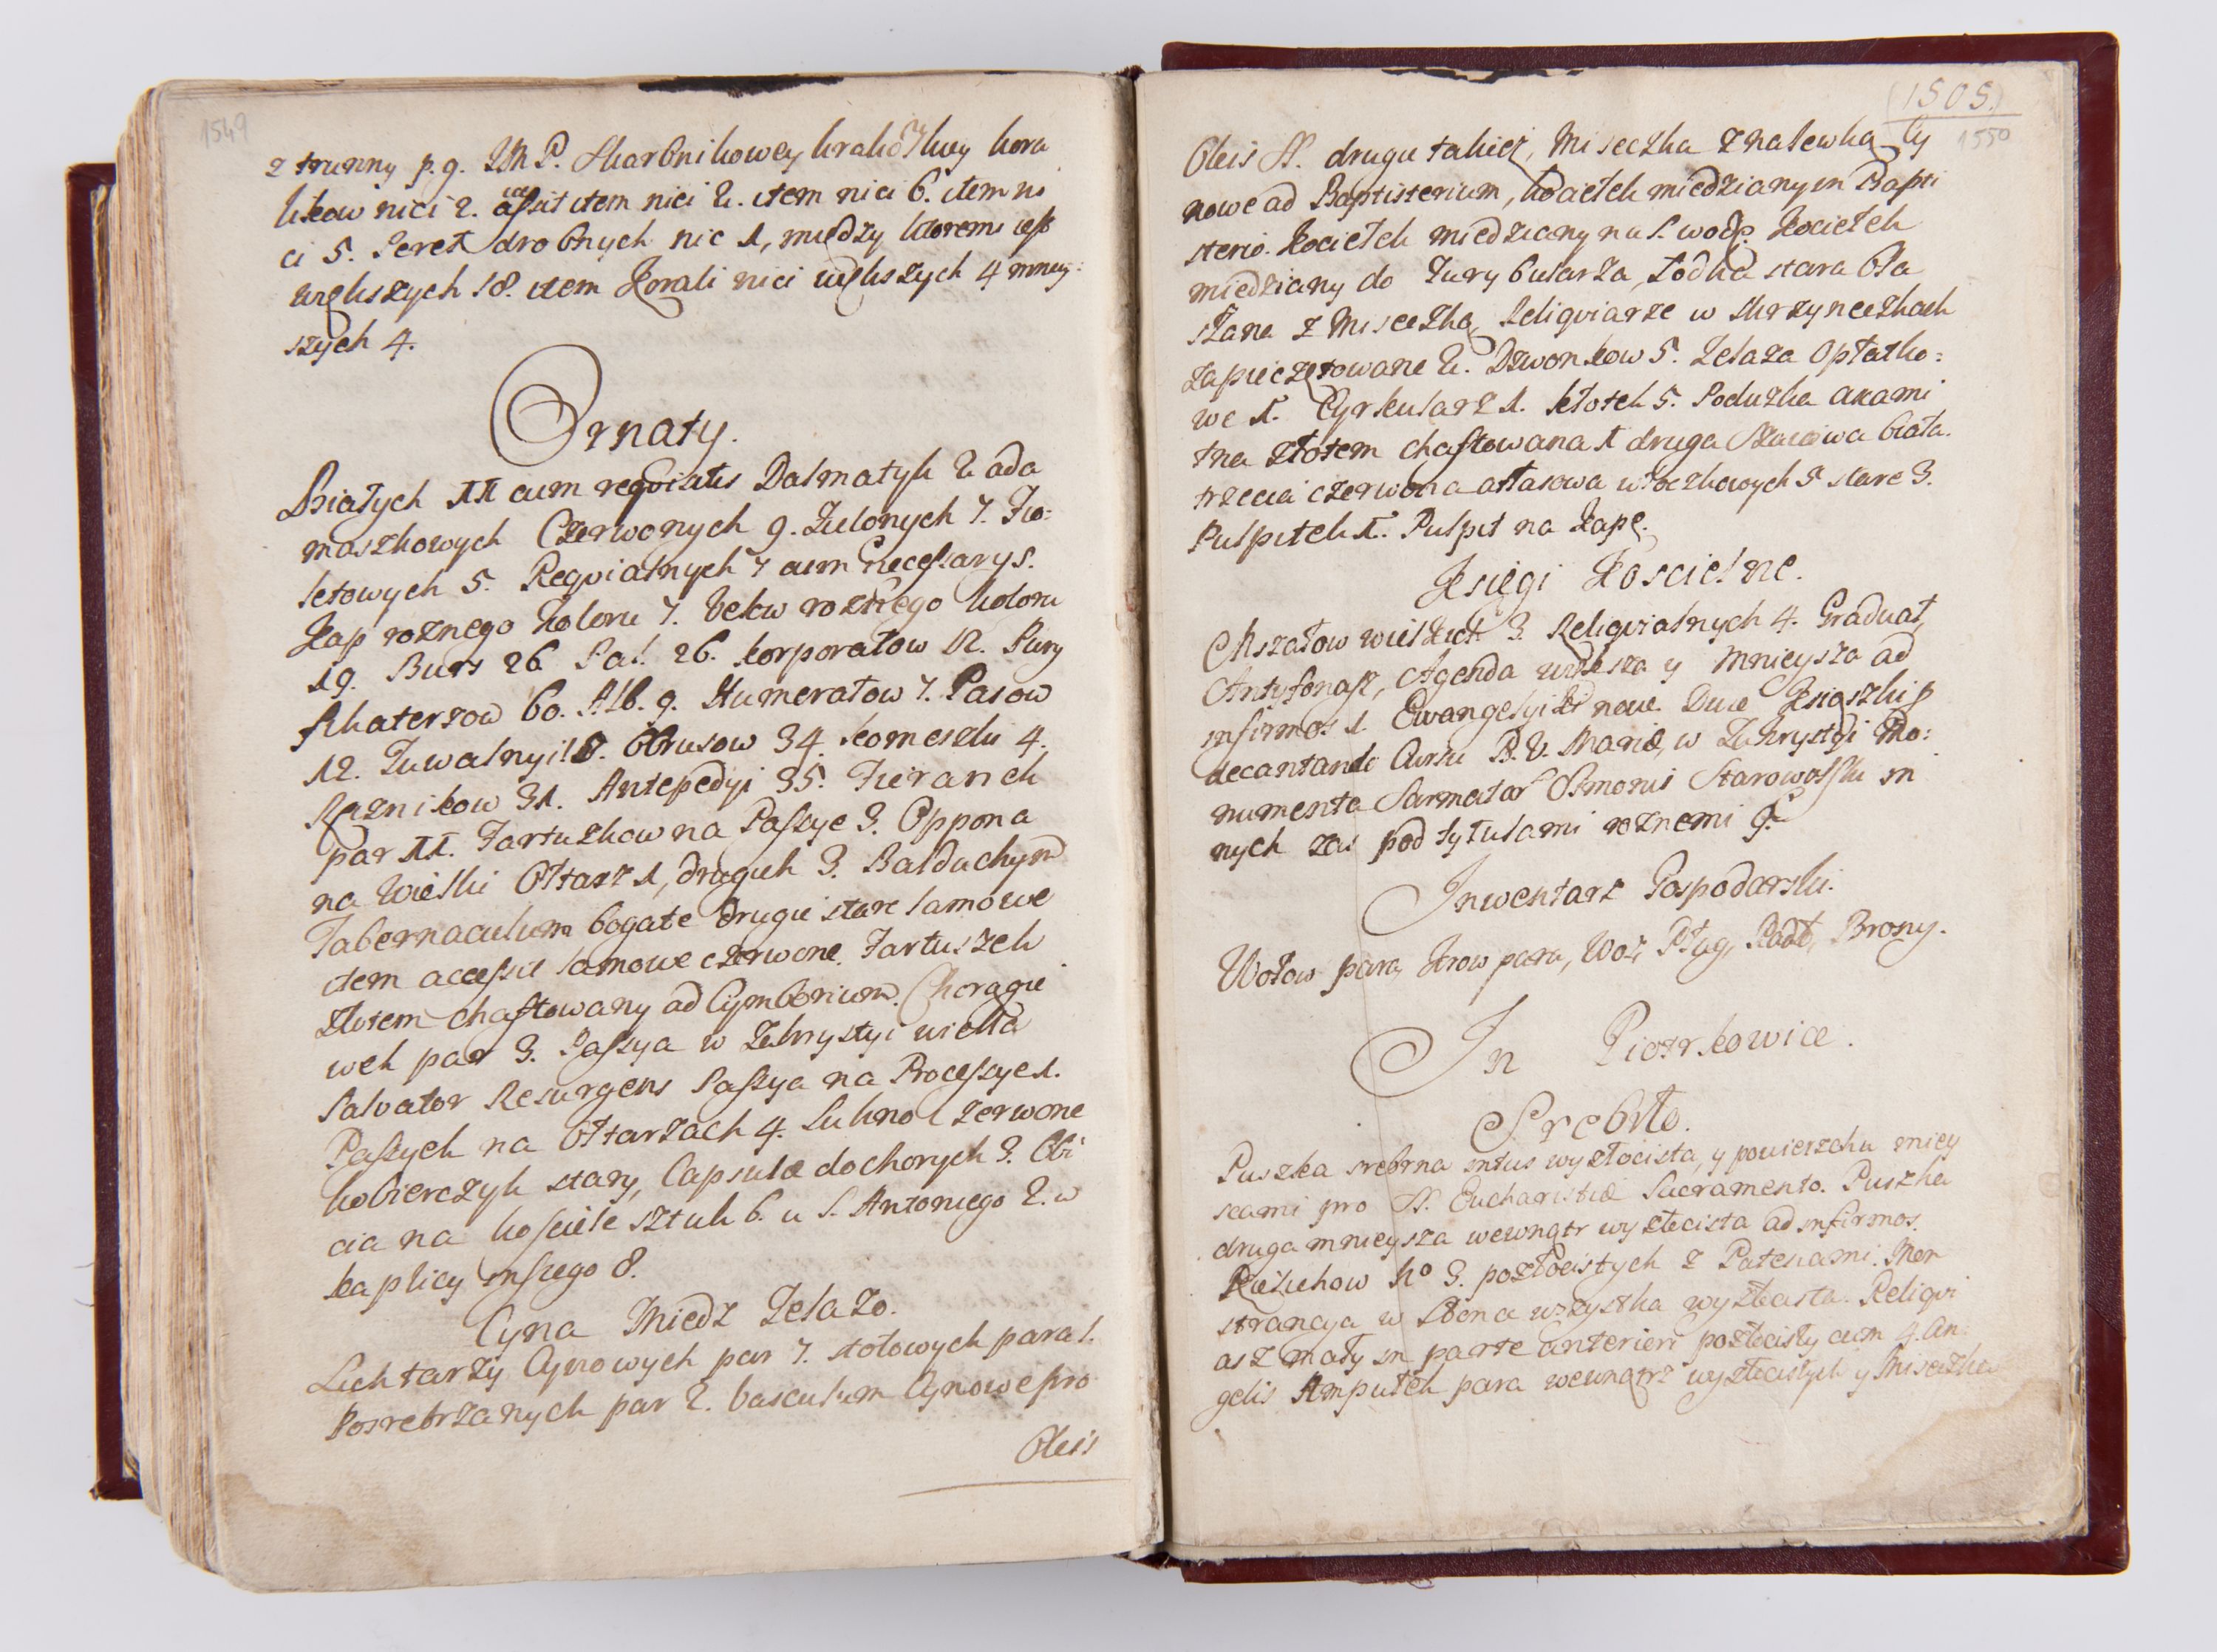 1549
z trunny p. g. JMP. Skarbnikowey krako kora
likow nici 2. item nici 2. item nici 6. item ni
ci 5. Pereł drobnych nic 1, między ktoremi iest
większych 18. item Korali nici większych 4 mniey:
szych 4.
Ornaty.
Białych 11 cum reqvisitis Dalmatyk 2 ada
maszkowych Czerwonych 9. Zielonych 7. Fio:
letowych 5. Reqvialnych 7 cum necessarys.
Kap roznego koloru 7. Velow roznego koloru
19. Burs 26 Pal. 26. korporałow 12. Pury
fikaterzow 60. Alb. 9. Humerałow 7. Pasow
12. Tuwalnyi 8. Obrusow 34. komeszki 4.
Ręcznikow 31. Antepedyi 35. Firanek
par 11. Fartuszkow na Passye 3. Oppona
na Wielki Ołtarz 1, drugich 3. Balduchym
Tabernaculum bogate drugie stare lamowe
item accessit lamowe czerwone. Fartuszek
złotem chaftowany ad Cymborium. Choragie
wek par 3. Passya w Zakrystyi wielka
Salvator Resurgens Passya na Processye 1.
Passyek na Ołtarzach 4. Sukno czerwone
kobierczyk stary, Capsulæ do chorych 3. Obi
cia na kościele sztuk 6. u S. Antoniego 2. w
kaplicy inszego 8.
Cyna Miedz Zelazo.
Lichtarzy Cynowych par 7. stołowych para 1.
Posrebrzanych par 2. Vasculum Cynowe pro
Oleis
(1505.)
1550
Oleis SS. drugie takież, Miseczka z nalewką Cy
nowe ad Baptisterium, kociełek miedziany in Bapti
sterio. Kociełek miedziany na S. wodę. Kociełek
miedziany do Turybularza, Łodka stara Bla
szana z Miseczką, Reliqviarze w skrzyneczkach
zapieczętowane 2. Dzwonkow 5. Zelaza Opłatko:
we 1. Cyrkularz 1. kłotek 5. Poduszka axami
tna złotem chaftowana 1 druga biała.
trzecia czerwona atłasowa włoczkowych 5 stare 3.
Pulpitek 1. Pulpit na Kapę.
Księgi Koscielne.
Mszałow wielkich 3. Reliqvialnych 4. Graduał,
Antyfonarz, Agenda większa y mnieysza ad
infirmos 1 Ewangelyiki nowe. Dwie Ksiąszki p
decantandi Cursu B. V. Mariæ, w Zakrystyi Mo:
numenta Sarmatar Simonis Starowolski in
nych zas pod tytułami roznemi 9.
Inwentarz Gospodarski.
Wołow para, krow para, Woz, Pług, Radł, Brony.
In Piotrkowice.
Srebro.
Puszka srebrna intus wyzłocista, y powierzchu miey
scami pro SS. Eucharistiæ Sacramento. Puszka
druga mnieysza wewnątr wyzłocista ad infirmos.
Kielichow No 3. pozłocistych z Patenami. Mon
strancya w słonce wszystka wyzłocista. Reliqvi
arz mały in parte anteriori pozłocisty cum 4. An:
gelis Ampułek para wewnątrz wyzłocistych y Miseczka